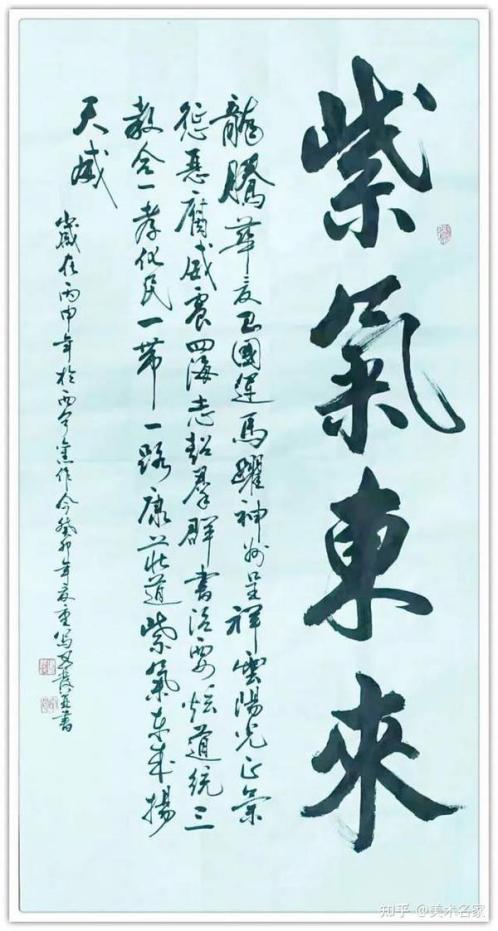 紫氣東來
龍騰華夏旺國運馬躍神州呈祥雲陽光正氣
懲惡腐威震四海志超群群書治要炫道統三
教合一孝化民一帶一路康莊道紫氣東來揚
天威
歲在丙申年於西寧 作今癸卯年夏重寫 書
知乎 @美术名家